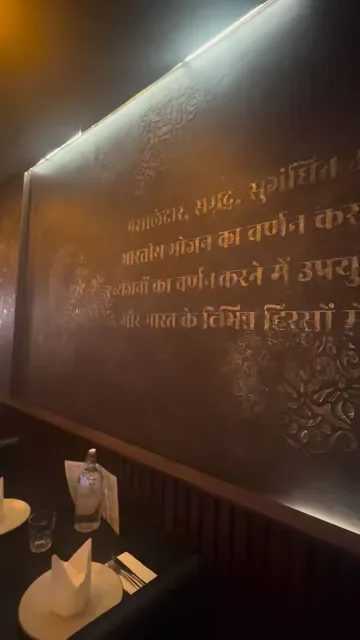 मसालेदार, समृद्ध, सुगंधित
भारतीय भोजन का वर्णन
व्यंजनों का वर्णन करने में
और भारत के विभिन्न हिस्सों